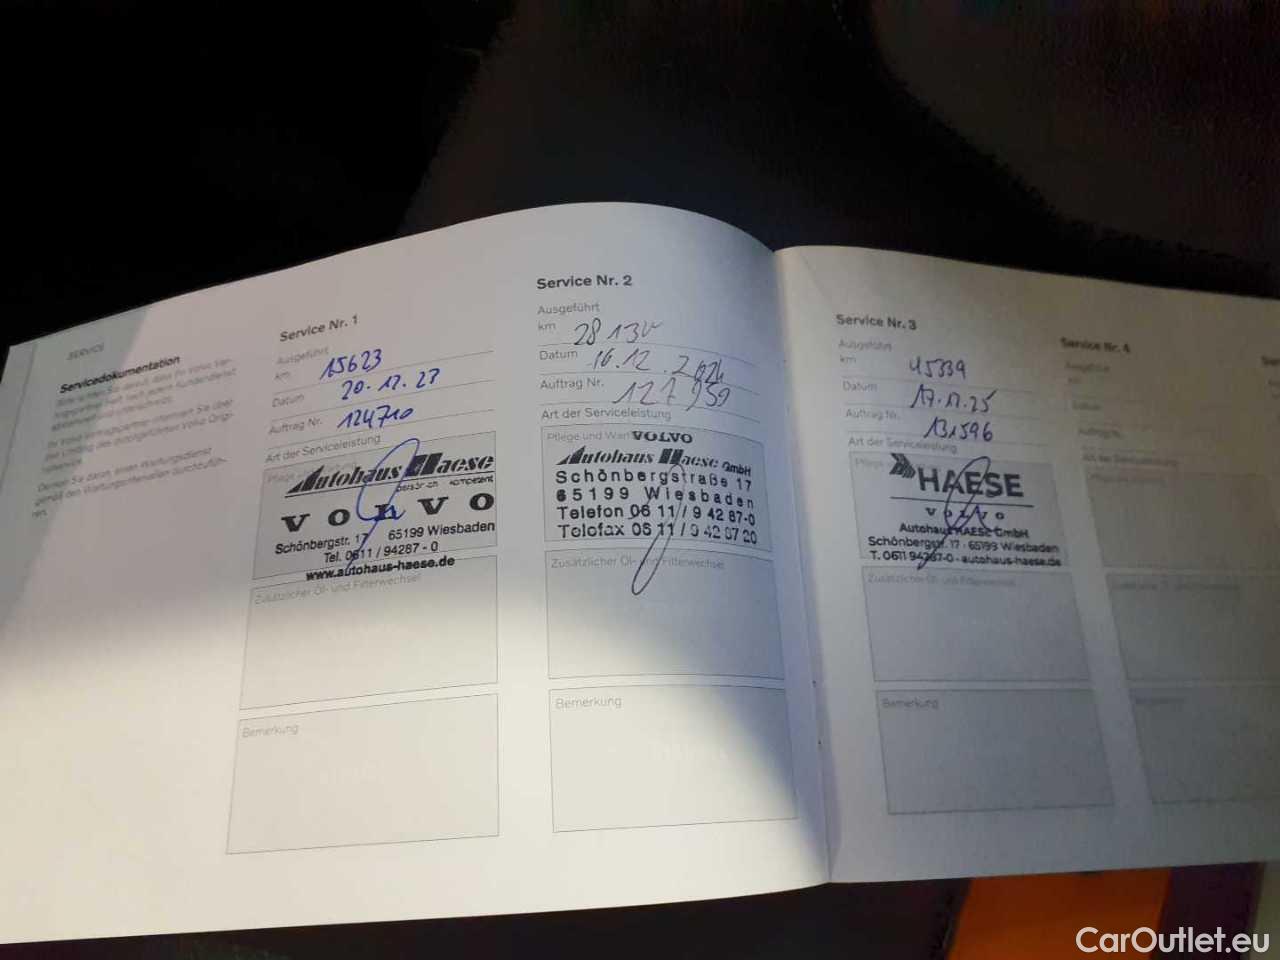 SERVICE
Servicedokumentation
Service Nr. 1
Ausgeführt
km 15623
Datum 20.12.23
Auftrag Nr. 124710
Art der Serviceleistung
Autohaus Haese
persönlich kompetent
VOLVO
Schönbergstr. 17 65199 Wiesbaden
Tel. 0611 / 94287 - 0
www.autohaus-haese.de
Zusätzlicher Öl- und Filterwechsel
Bemerkung
Service Nr. 2
Ausgeführt
km
Datum 16.12.2024
Auftrag Nr. 127959
Art der Serviceleistung
Pflege und
VOLVO
Autohaus Haese GmbH
Schönbergstraße 17
65199 Wiesbaden
Telefon 06 11 / 9 42 87-0
Telefax 06 11 / 9 42 87 20
Zusätzlicher Öl- und Filterwechsel
Bemerkung
Service Nr. 3
Ausgeführt
km 45339
Datum 17.12.25
Auftrag Nr. 131596
Art der Serviceleistung
Pflege
HAESE
VOLVO
Autohaus HAESE GmbH
Schönbergstr. 17 · 65199 Wiesbaden
T. 0611 94287-0 · autohaus-haese.de
Zusätzlicher Öl- und Filterwechsel
Bemerkung
Service Nr. 4
Ausgeführt
km
Datum
Auftrag Nr.
Art der Serviceleistung
CarOutlet.eu